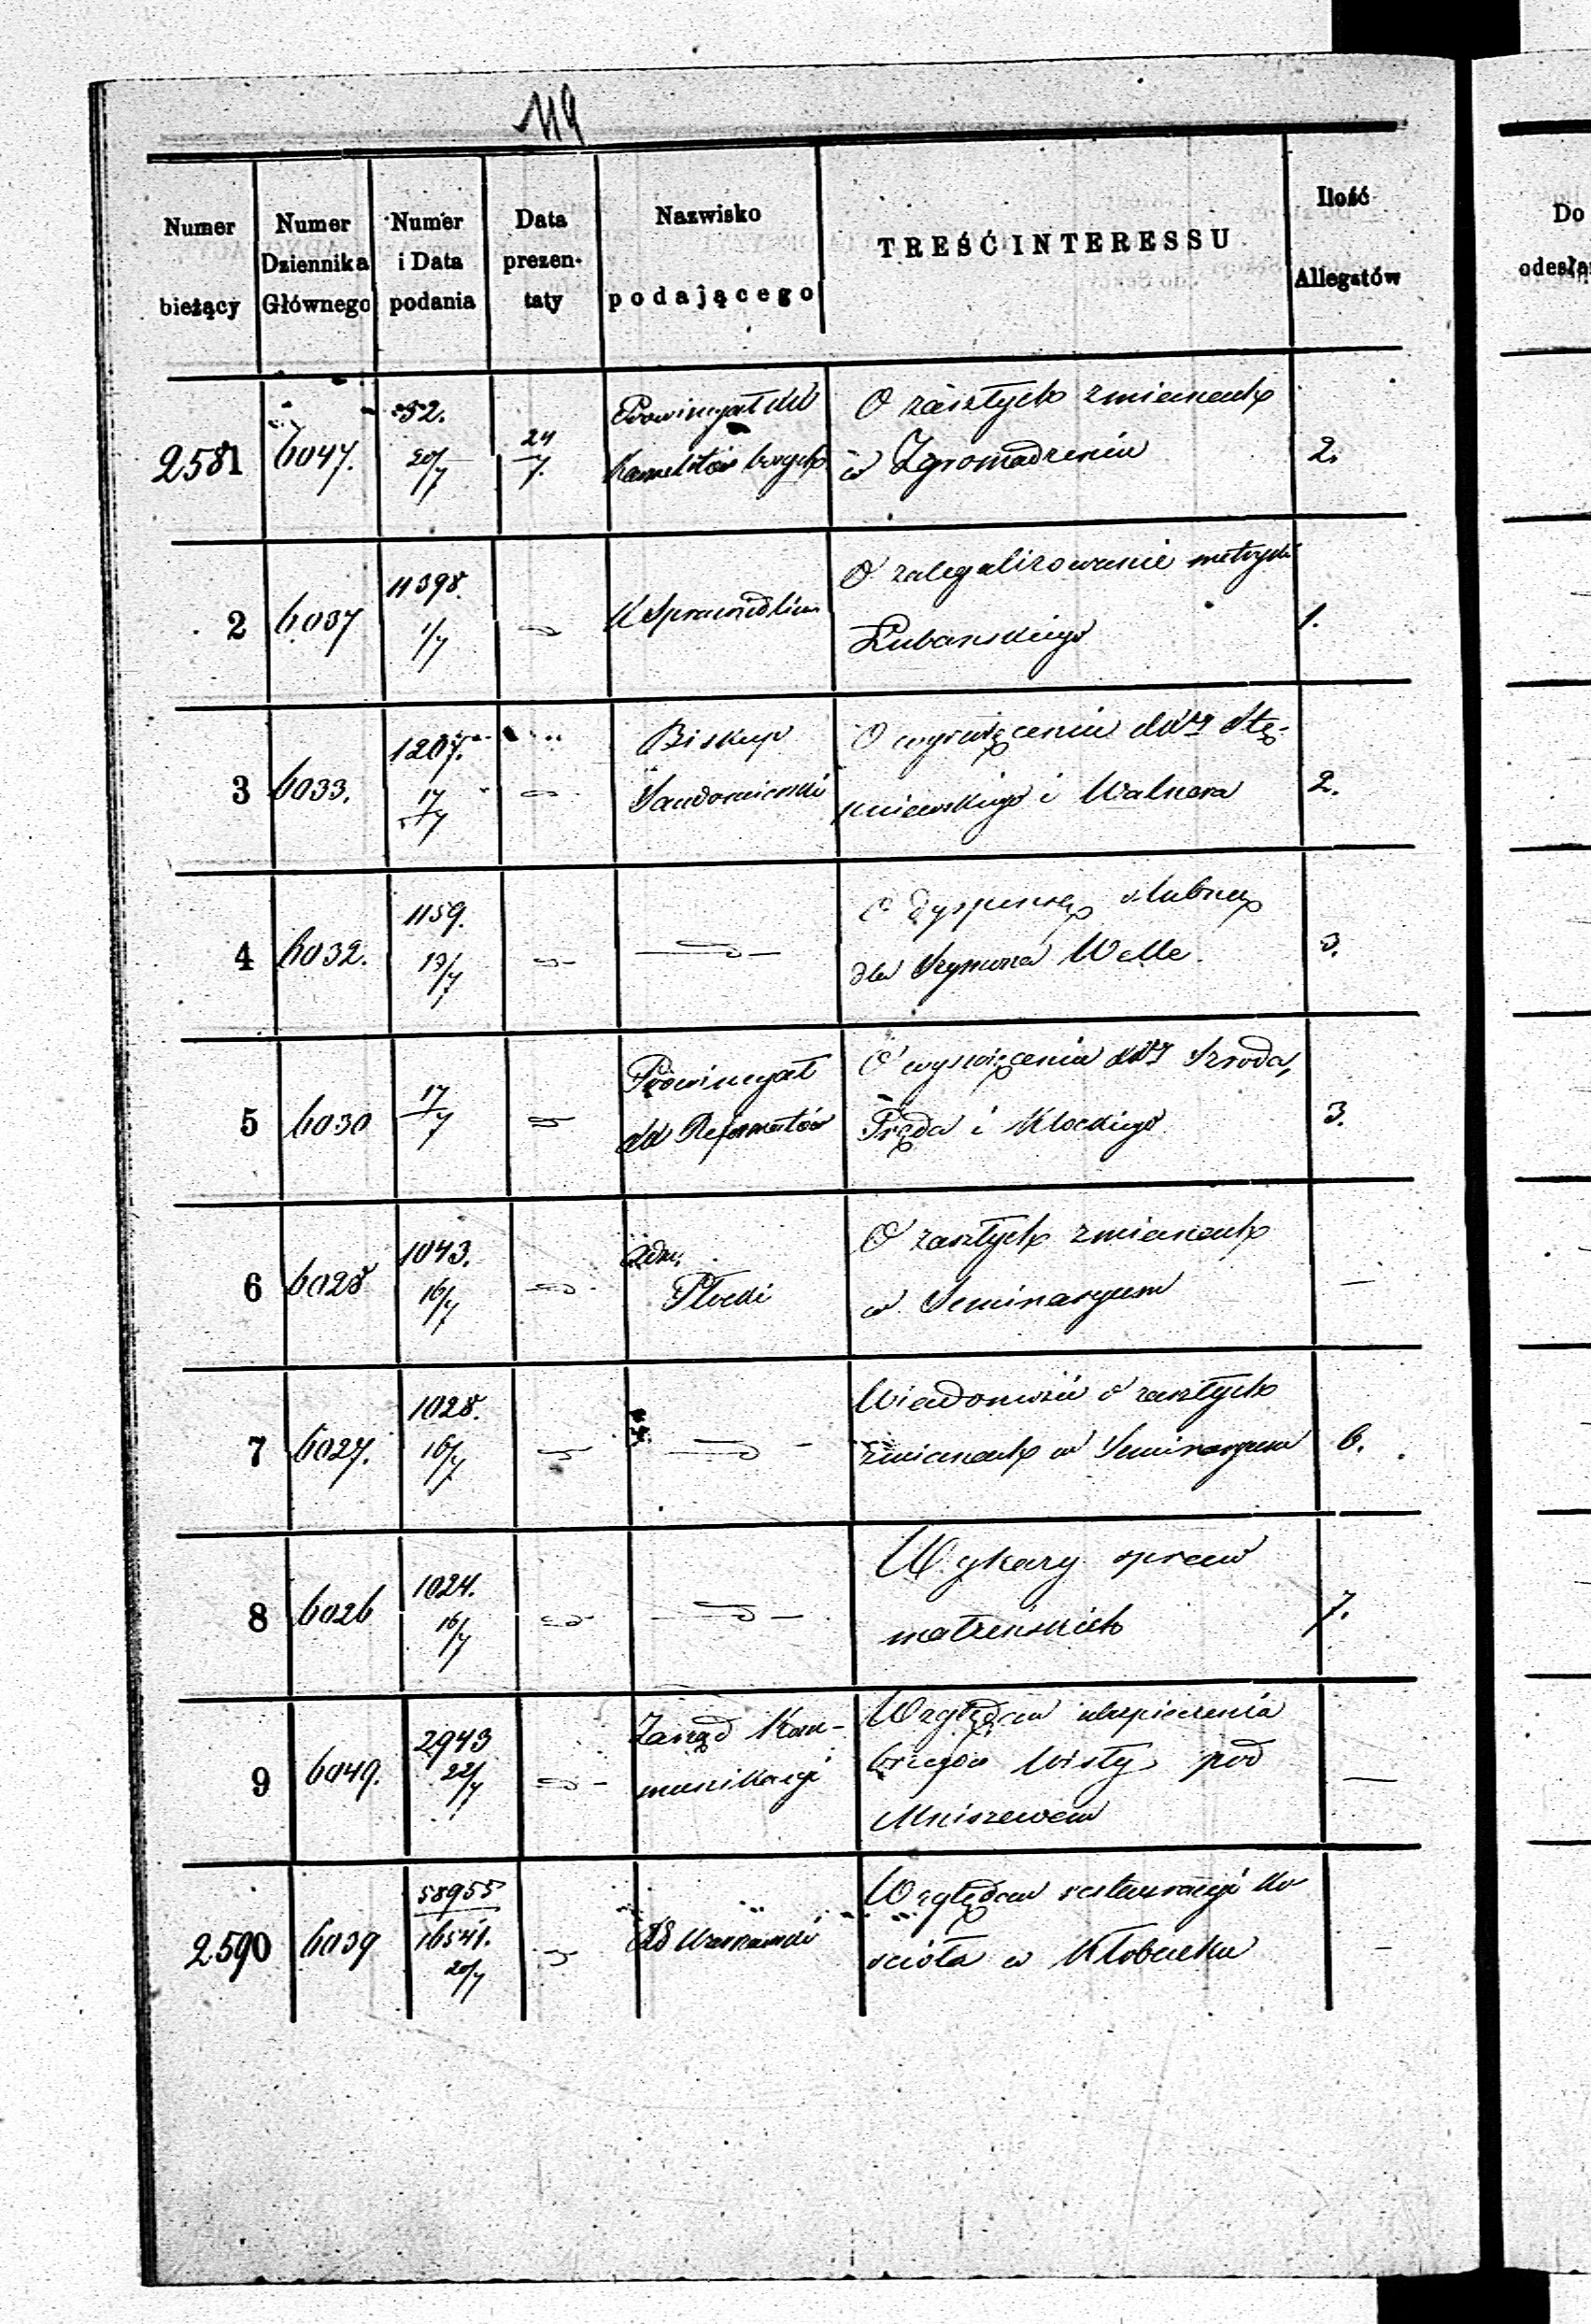 119
Numer bieżący
Numer Dziennika Głównego
Numer i Data podania
Data prezen- taty
Nazwisko podającego
TREŚĆ INTERESSU
Ilość Allegatów
Do
odesła
2581 6047. 52. 20/7 24/7. Prowincyał
Karmelitów
O zaszłych zmianach
w Zgromadzeniu
2.
2 6037 11398. 1/7
K Sprawiedliw
O zalegalizowanie metryki
Lubanskiego
1.
3 6033. 1207. 17/7
Biskup
Sandomierski
O wyswięceniu
i Walnera
2.
4 6032. 1159. 19/7
O dyspensę slubną
dla Szymona Welle.
3.
5 6030 17/7
Prowincyał
Reformatów
O wyswięceniu Szroda,
i Klockiego
3.
6 6028 1043. 16/7
Adm.
Płocki
O zaszłych zmianach
w Seminaryum
—
7 6027. 1028. 16/7
Wiadomość o zaszłych
zmianach w Seminaryum
6.
8 6026 1024. 16/7
Wykazy spraw
małżeńskich
7.
9 6049. 2943 22/7
Zarząd Kom-
munikacyi
Względem ubezpieczenia
brzegów Wisły pod
Mniszewem
—
2590 6039 58955 16541. 20/7
Warszawski
Względem restauracyi ko
scioła w Kłobucku
—